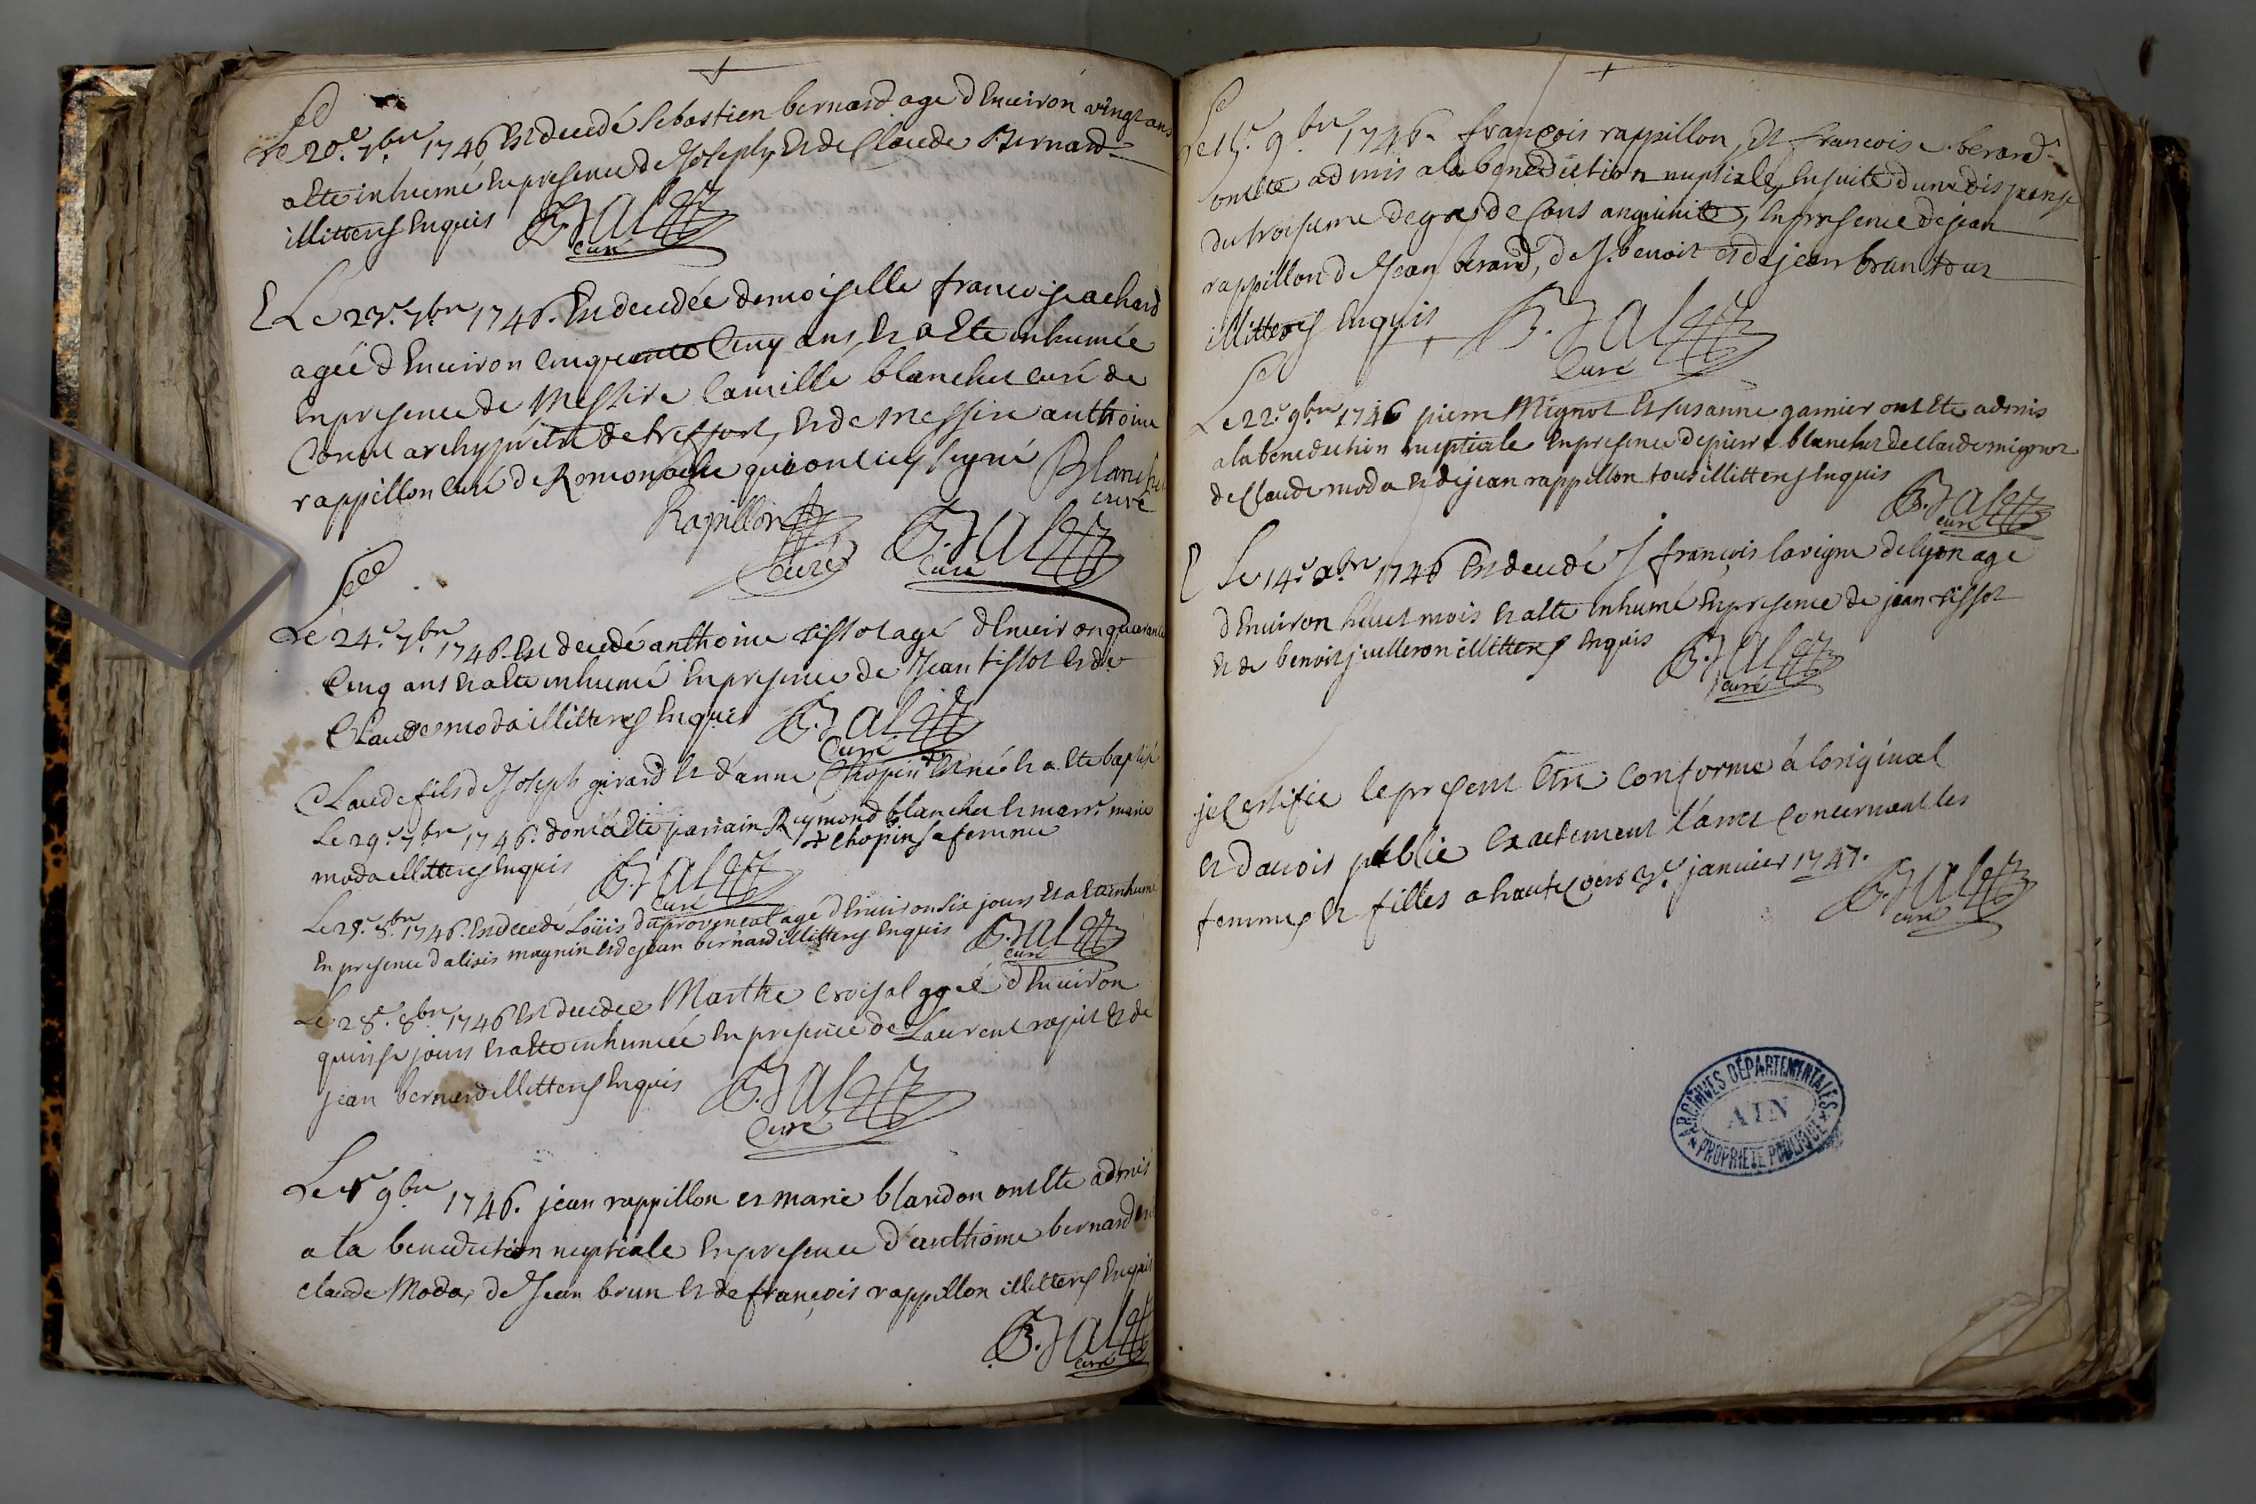 Le 20e 7bre 1746 Est decedé Sebastien bernard age d'Environ vingt ans
a Ete inhumé En presence de Joseph, Et de Claude Bernard
illitterés Enquis B. curé
Le 23e 7bre 1746. Est decedée demoiselle françoise achard
agée d'Environ Cinquante Cinq ans, Et a Ete inhumée
En presence de Messire Camille blanchet curé de
archyprêtre de treffort, Et de Messire anthoine
rappillon curé de Romonache qui ont icy signé Blanchet
curé
Rapillon
curé curé
Le 24e 7bre 1746. Est decedé anthoine tissot agé d'Environ quarante
Cinq ans Et a Ete inhumé En presence de Jean tissot Et de
Claude moda illitterés Enquis
Curé
Claude fils de Joseph girard Et d'anne Chopin Est né Et a Ete baptisé
Le 29e 7bre 1746. dont a Eté parrain Reymond blanchet Et marr. marie
+ Chopin sa femme
moda illitterés Enquis
curé
Le 28e 8bre 1746. Est decedé Loüis du provencal agé d'Environ six jours Et a Ete inhumé
En presence d'alixis magnin Et de jean bernard illitterés Enquis
curé
Le 28e 8bre 1746 Est decedée Marthe croisal agée d'Environ
quinse jours Et a Ete inhumée En presence de Laurent Et de
jean bernard illitterés Enquis
Curé
Le 9bre 1746. jean rappillon Et marie blandon ont Ete admis
a la benediction nuptiale En presence d'anthoine bernard de
claude Moda, de Jean brun Et de françois rappillon illitterés Enquis
curé
Le 15e 9bre 1746. françois rappillon, Et françoise berard
ont Ete admis a la benediction nuptiale, En suite d'une dispense
du troisieme degré de Consanguinité, En presence de jean
rappillon de Jean berard, de J. benoit Et de jean brun tous
illitterés Enquis
Curé
Le 22e 9bre 1746 pierre Mignot Et susanne garnier ont Ete admis
a la benediction nuptiale En presence de pierre blanchet de claude mignot
de Claude moda Et de jean rappillon tous illitterés Enquis
curé
Le 14e xbre 1746 Est decedé J françois lavigne de lyon age
d'Environ huit mois Et a Ete inhumé En presence de jean tissot
Et de benoit juilleron illitterés Enquis
curé
je Certifie le present Etre Conforme á loriginal
Et d'avoir publié Exactement l'arret Concernant les
femmes Et filles a haute voix 3e janvier 1747.
curé
ARCHIVES DÉPARTEMENTALES
AIN
PROPRIÉTÉ PUBLIQUE